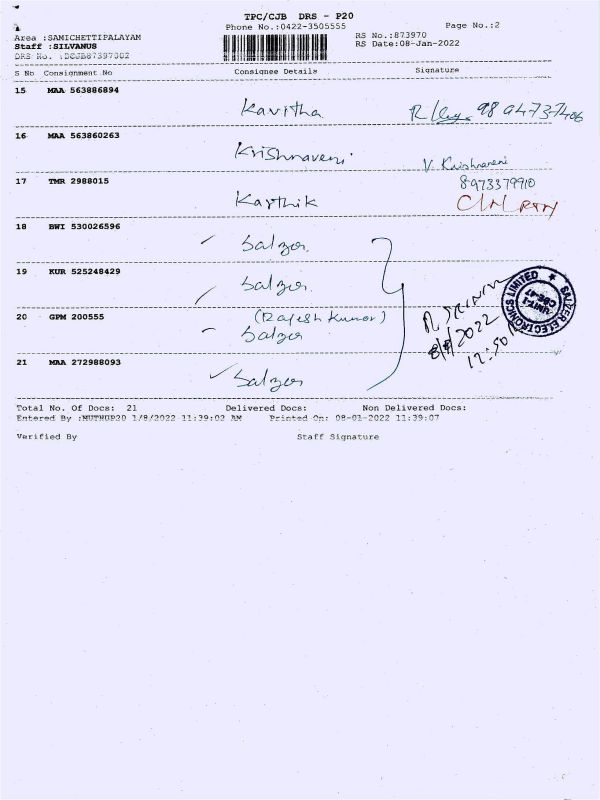 TPC/CJB DRS - P20
Phone No.:0422-3505555
Page No.:2
Area :SAMICHETTIPALAYAM
RS No.:873970
Staff :SILVANUS
RS Date:08-Jan-2022
S No Consignment No Consignee Details Signature
15 MAA 563886894 Kavitha
16 MAA 563860263 Krishnaveni V. Krishnaveni
8973379910
17 TMR 2988015 Karthik
18 BWI 530026596 Salzer
19 KUR 525248429 Salzer
20 GPM 200555 (Rajesh Kumar)
Salzer
21 MAA 272988093 Salzer
12:50
SALZER ELECTRONICS LIMITED
UNIT-I
CBE-47
Total No. Of Docs: 21 Delivered Docs: Non Delivered Docs:
Entered By :MUTHUP20 1/8/2022 11:39:02 AM Printed On: 08-01-2022 11:39:07
Verified By Staff Signature